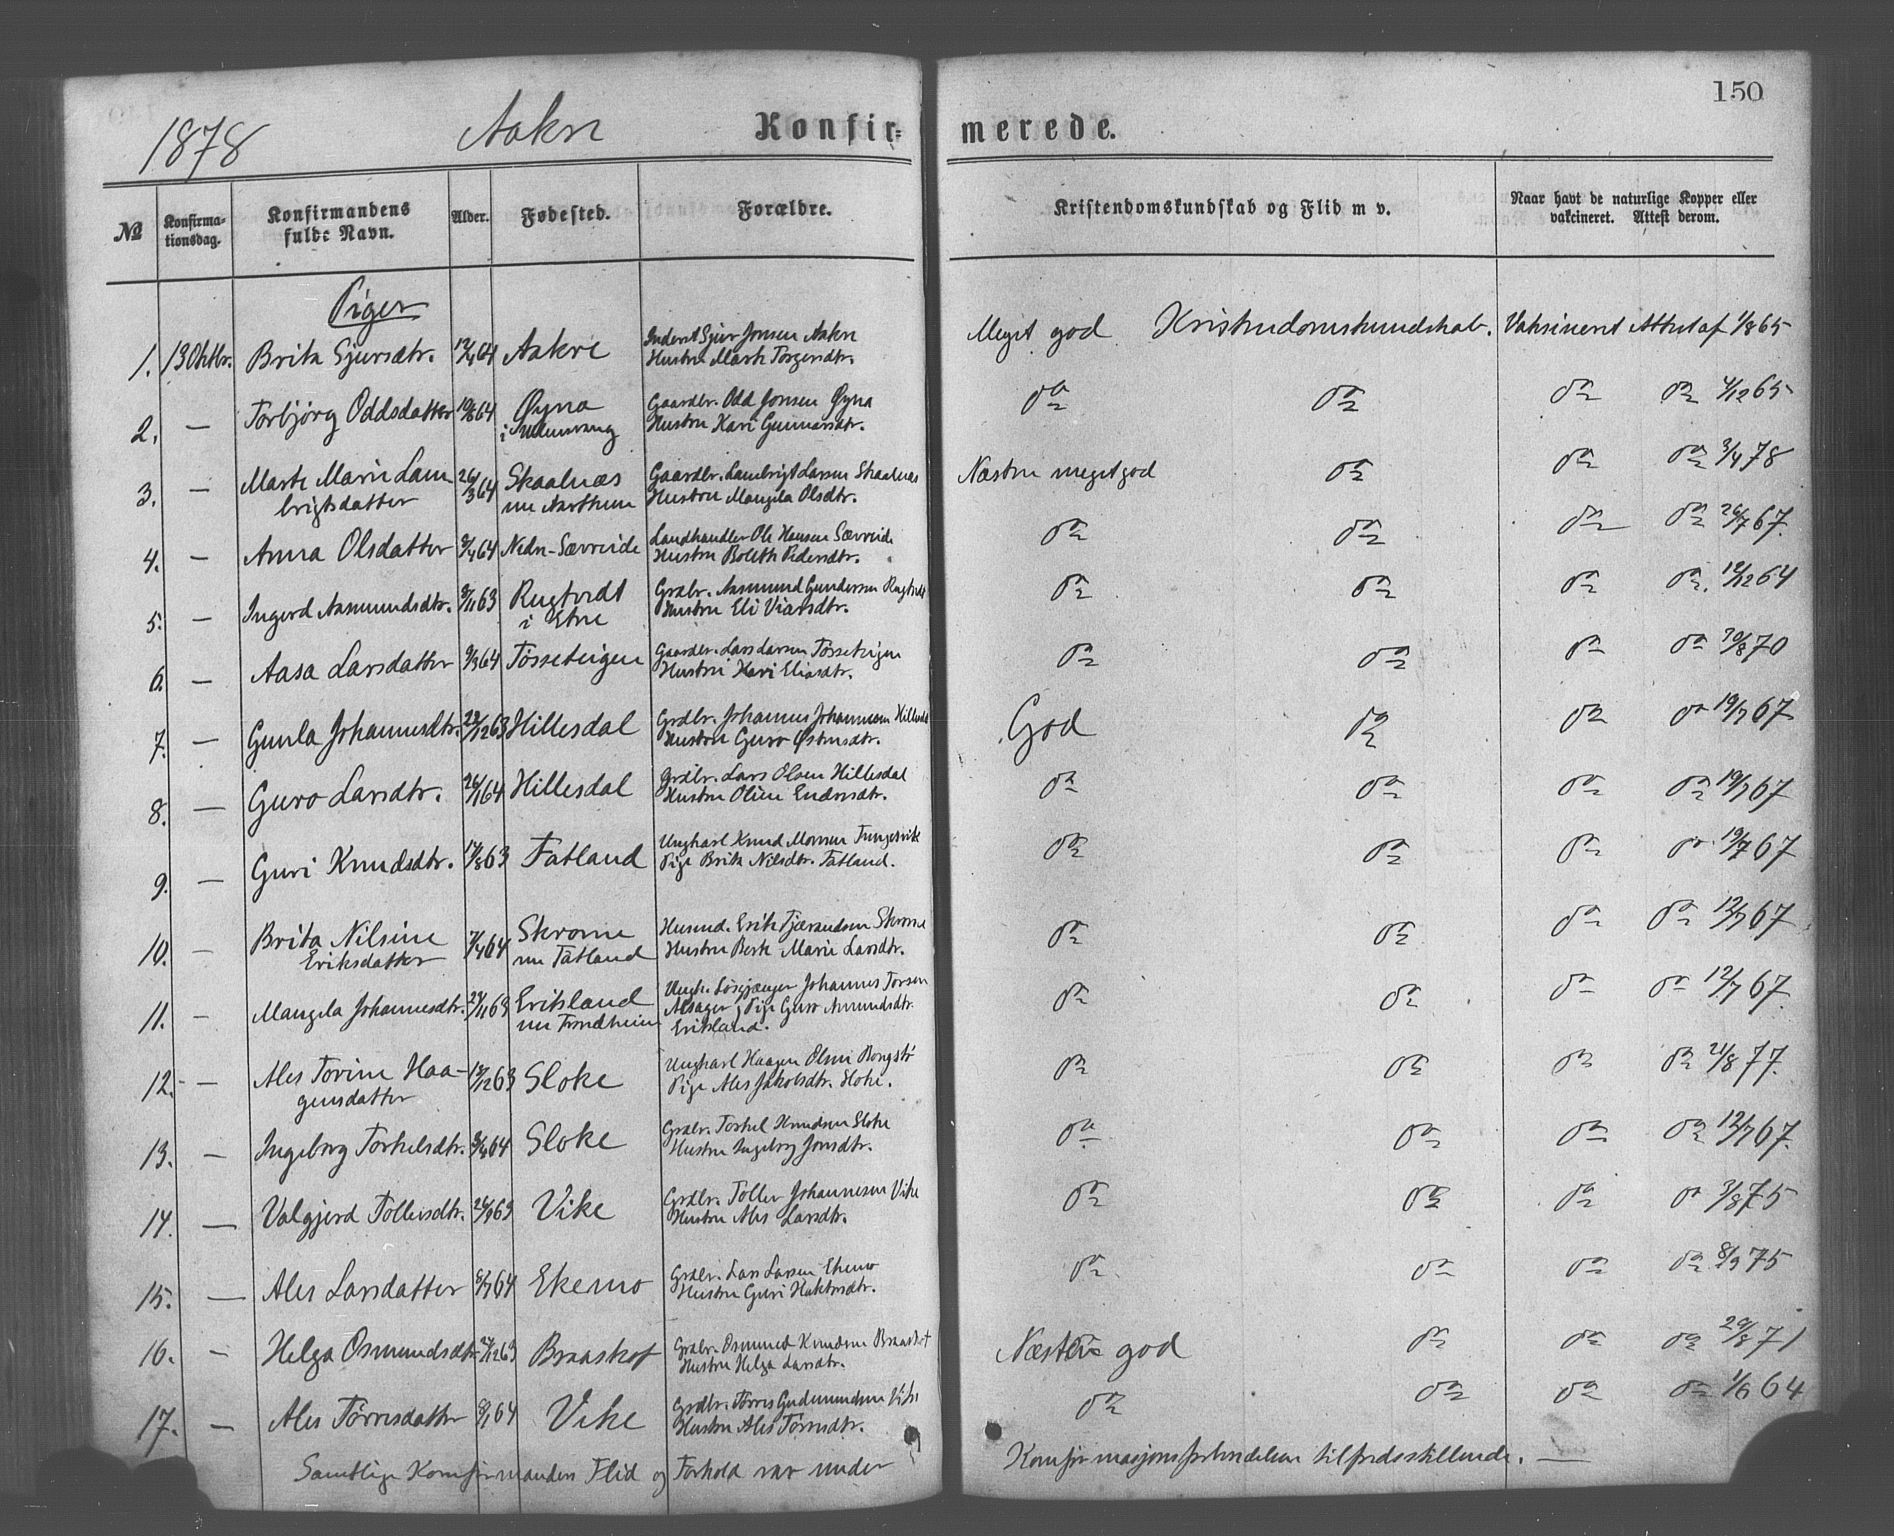 150
1878 Aakre Konfir= merede.
№ Konfirma-tionsdag. Konfirmandens fulde Navn. Alder. Fødested. Forældre. Kristendomskundskab og Flid m v. Naar havt de naturlige Kopper eller vakcineret. Attest derom.
Piger
1. 13 Oktbr. Brita Sjursdtr. Aakre Sjur Jonsen Aakre Meget god Kristendomskundskab. Vaksineret Attest af 1/8 65
Hustru Marte Torgersdtr.
2. — Torbjørg Oddsdatter 64 Øyna Gaardbr. Odd Jonsen Øyna do do do do 4/12 65
i Hustru Kari Gunnarsdtr.
3. — Marte Marie Lam 26/3 64 Skaalnæs Gaardbr. Lambrigt Larsen Skaalnæs Næsten meget god do do do 3/4 78
brigtsdatter Hustru Mangela Olsdtr.
4. — Anna Olsdatter 64 Nedre-Sævreide Landhandler Ole Hansen Sævreide do do do do 26/7 67.
Hustru Bolette Pedersdtr.
5. — Ingerd Aasmundsdtr. 63 Rugtvedt Grdbr. Aasmund Gundersen Rugtvedt do do do do. 12/12 64
i Etne Hustru Eli Viarsdtr.
6. — Aasa Larsdatter 9/3 64 Tøsseteigen Gaardbr. Lars Larsen Tøsseteigen do do do do 30/8 70
Hustru Kari Eliasdtr.
7. — Gunla Johannesdtr. 63 Hillesdal Grdbr. Johannes Johannesen Hillesdal God do do do 19/7 67
Hustru Guro Østensdtr.
8. — Guro Larsdtr. 26/1 64 Hillesdal Grdbr. Lars Olsen Hillesdal do do do do 19/7 67
Hustru Oline Endresdtr.
9. — Guri Knudsdtr. 63 Fatland Ungkarl Knud Monsen Tungesvik do do do do 19/7 67
Pige Brita Nilsdtr. Fatland.
10. — Brita Nilsine 64 Skrome Husmd. Erik Tjærandsen Skrome do do do do 12/7 67
Eriksdatter Fatland Hustru Berte Marie Larsdtr.
11. — Mangela Johannesdtr. 63 Eriksland Ungk. Løsgjænger Johannes Torsen do do do do 12/7 67
Alsager, Pige Guro Amundsdtr.
Eriksland.
12. — Ales Torine Haa- 63 Sloke Ungkarl Haagen Olsen do do do do 21/8 77.
gensdatter Pige Ales Jakobsdtr. Sloke.
13. — Ingeborg Torkelsdtr. 64 Sloke Grdbr. Torkel Knudsen Sloke do do do do 12/7 67.
Hustru Ingeborg Jonsdtr.
14. — Valgjerd Tollevsdtr. 63 Vike Grdbr. Tollev Johannesen Vike do do do do 3/8 75
Hustru Ales Larsdtr.
15. — Ales Larsdatter 8/7 64 Ekemo Grdbr. Lars Larsen Ekemo do do do do 8/9 75
Hustru Guri
16. — Helga Osmundsdtr. 63 Braaskot Grdbr. Osmund Knudsen Braaskot Næsten god do do do 29/8 71
Hustru Helga Larsdtr.
17. — Ales Tørresdatter 64 Vike Grdbr. Tørres Gudmundsen Vike do do do do 1/6 64
Hustru Ales Tørresdtr.
Samtlige Konfirmanders Flid og Forhold var under Konfirmasjonsforberedelsen tilfredsstillende. —